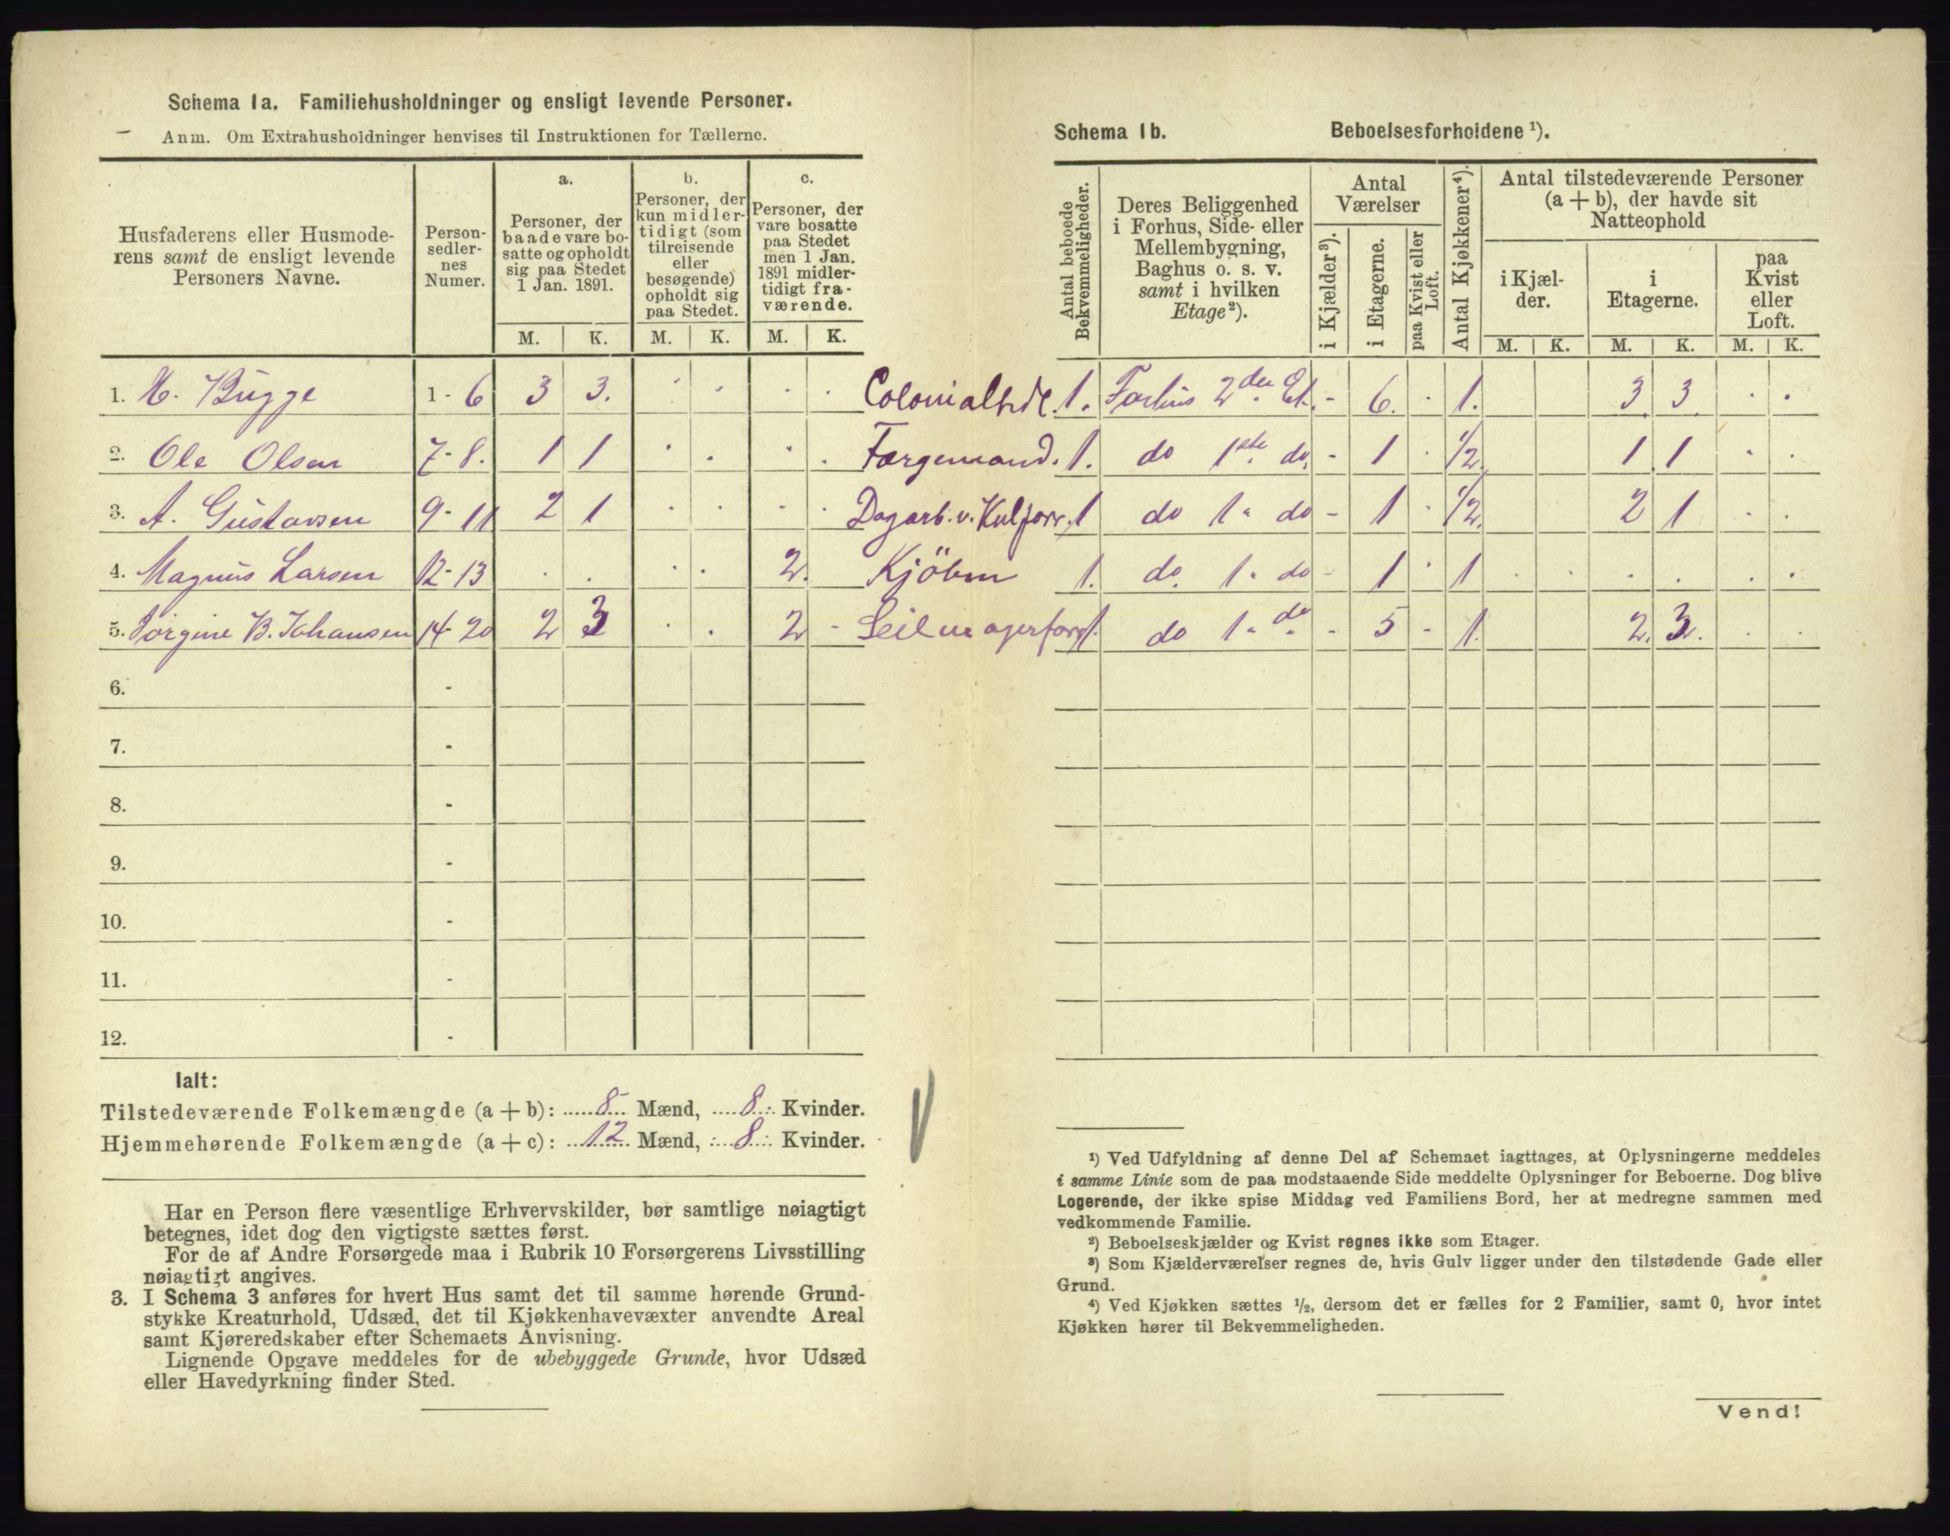 Schema 1a. Familiehusholdninger og ensligt levende Personer.
Anm. Om Extrahusholdninger henvises til Instruktionen for Tællerne.
Husfaderens eller Husmode-
rens samt de ensligt levende
Personers Navne.
Person-
sedler-
nes
Numer.
a.
Personer, der
baade vare bo-
satte og opholdt
sig paa Stedet
1 Jan. 1891.
b.
Personer, der
kun midler-
tidigt (som
tilreisende
eller
besøgende)
opholdt sig
paa Stedet.
c.
Personer, der
vare bosatte
paa Stedet
men 1 Jan.
1891 midler-
tidigt fra-
værende.
M. K. M. K. M. K.
1. H. Bugge 1 - 6 3 3. Colonialhdl.
2. Ole Olsen 7-8. 1 1 Fargemand.
3. A. Gustavsen 9-11 2 1 Dagarb. v. Kulforr.
4. Magnus Larsen 12-13 2. Kjöbm
5. Jørgine B. Johansen 14-20 2 3 2 - Seilmagerforr.
6. -
7. -
8. -
9. -
10. -
11. -
12. -
Ialt:
Tilstedeværende Folkemængde (a + b): 8 Mænd, 8 Kvinder.
Hjemmehørende Folkemængde (a + c): 12 Mænd, 8 Kvinder.
Har en Person flere væsentlige Erhvervskilder, bør samtlige nøiagtigt
betegnes, idet dog den vigtigste sættes først.
For de af Andre Forsørgede maa i Rubrik 10 Forsørgerens Livsstilling
nøiagtigt angives.
3. I Schema 3 anføres for hvert Hus samt det til samme hørende Grund-
stykke Kreaturhold, Udsæd, det til Kjøkkenhavevæxter anvendte Areal
samt Kjøreredskaber efter Schemaets Anvisning.
Lignende Opgave meddeles for de ubebyggede Grunde, hvor Udsæd
eller Havedyrkning finder Sted.
Schema 1b. Beboelsesforholdene ¹).
Antal beboede
Bekvemmeligheder.
Deres Beliggenhed
i Forhus, Side- eller
Mellembygning,
Baghus o. s. v.
samt i hvilken
Etage²).
Antal
Værelser
i Kjælder³).
i Etagerne.
paa Kvist eller
Loft.
Antal Kjøkkener⁴).
Antal tilstedeværende Personer
(a + b), der havde sit
Natteophold
i Kjæl-
der.
i
Etagerne.
paa
Kvist
eller
Loft.
M. K. M. K. M. K.
1. Forhus 2den Et. - 6. 1. 3. 3.
1. do 1ste do. - 1 1/2. 1 1
1 do 1 " do - 1 1/2. 2 1
1. do. 1 " do - 1 1
1. do 1 " do - 5 - 1. 2. 3.
¹) Ved Udfyldning af denne Del af Schemaet iagttages, at Oplysningerne meddeles
i samme Linie som de paa modstaaende Side meddelte Oplysninger for Beboerne. Dog blive
Logerende, der ikke spise Middag ved Familiens Bord, her at medregne sammen med
vedkommende Familie.
²) Beboelseskjælder og Kvist regnes ikke som Etager.
³) Som Kjælderværelser regnes de, hvis Gulv ligger under den tilstødende Gade eller
Grund.
⁴) Ved Kjøkken sættes ½, dersom det er fælles for 2 Familier, samt 0, hvor intet
Kjøkken hører til Bekvemmeligheden.
Vend!